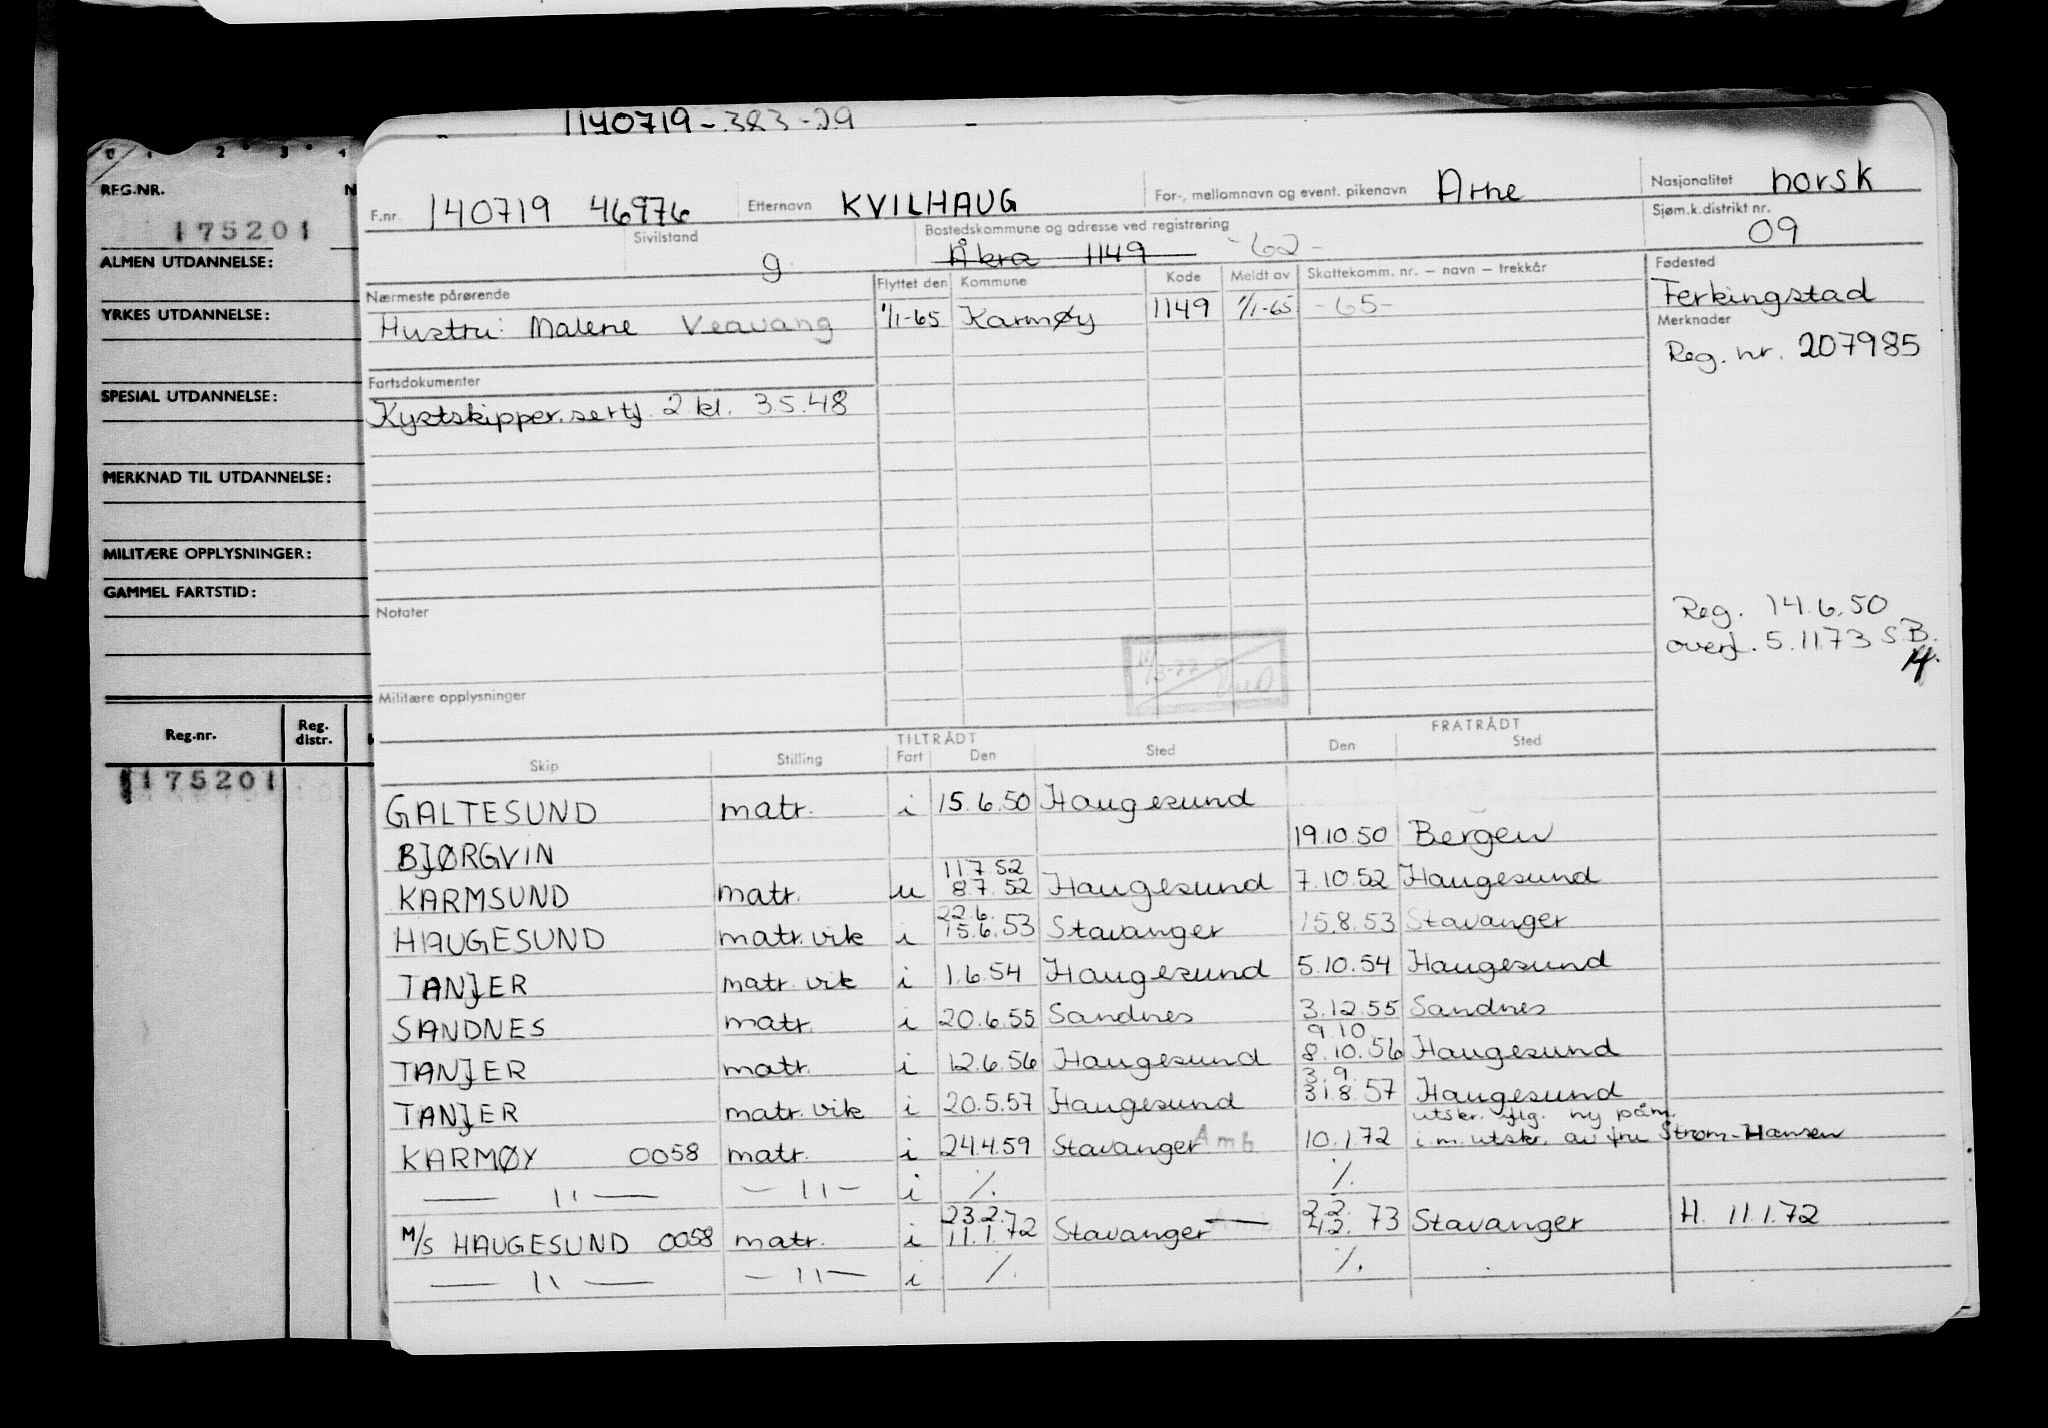 1140719-383-29
0 1 2 3 4
REG.NR. N
175201
ALMEN UTDANNELSE:
YRKES UTDANNELSE:
SPESIAL UTDANNELSE:
MERKNAD TIL UTDANNELSE:
MILITÆRE OPPLYSNINGER:
GAMMEL FARTSTID:
Reg.nr. Reg. distr.
175201
F.nr. 140719 46976 Etternavn KVILHAUG For-, mellomnavn og event. pikenavn Arne Nasjonalitet norsk
Sivilstand g Bostedskommune og adresse ved registrering Åkra 1149 -62- Sjøm.k.distrikt nr. 09
Nærmeste pårørende Flyttet den Kommune Kode Meldt av Skattekomm. nr. — navn — trekkår Fødested
Hustru: Malene Veavang 1/1-65 Karmøy 1149 1/1-65 -65- Ferkingstad
Merknader
Reg. nr. 207985
Fartsdokumenter
Kystskipper.sertf. 2 kl. 3.5.48
Notater
Reg. 14.6.50
overf. 5.11.73 S.B.
Militære opplysninger
TILTRÅDT FRATRÅDT
Skip Stilling Fart Den Sted Den Sted
GALTESUND matr. i 15.6.50 Haugesund
BJØRGVIN 19.10.50 Bergen
11 7 52
KARMSUND matr. u 8 7. 52 Haugesund 7.10.52 Haugesund
22.6.
HAUGESUND matr. vik i 15.6.53 Stavanger 15.8.53 Stavanger
TANJER matr. vik i 1.6.54 Haugesund 5.10.54 Haugesund
SANDNES matr. i 20.6.55 Sandnes 3.12.55 Sandnes
9.10
TANJER matr. i 12.6.56 Haugesund 8.10.56 Haugesund
3.9.
TANJER matr. vik i 20.5.57 Haugesund 31.8.57 Haugesund
utskr. flg. ny påm.
KARMØY 0058 matr. i 24.4.59 Stavanger Amb 10.1.72 i.m. utskr. av fru Strøm-Hansen
— 11 — — 11 — i %. %.
23.2. 2.2.
M/S HAUGESUND 0058 matr. i 11.1.72 Stavanger 4.2. 73 Stavanger H. 11.1.72
— 11 — — 11 — i %. %.